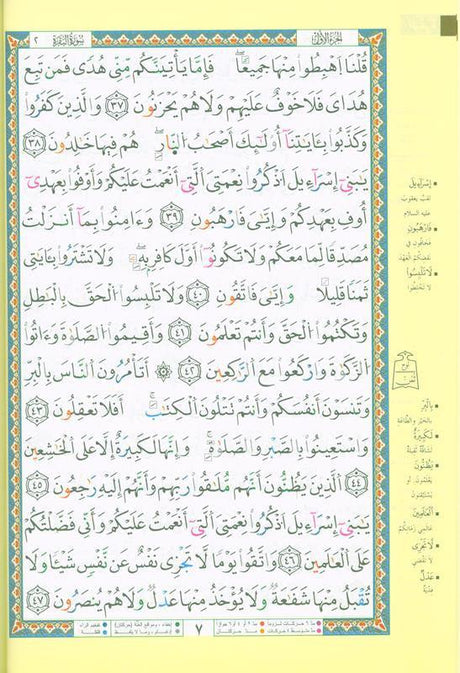 سُورَةُ الْبَقَرَةِ ٢
الجُزءُ الأوّل
قُلْنَا اَهْبِطُواْ مِنْهَا جَمِيعًا فَإِمَّا يَأْتِيَنَّكُم مِّنِّى هُدًى فَمَن تَبِعَ
هُدَاىَ فَلَا خَوْفٌ عَلَيْهِمْ وَلَا هُمْ يَحْزَنُونَ ٣٧ وَالَّذِينَ كَفَرُواْ
وَكَذَّبُواْ بِـَٔايَـٰتِنَآ أُوْلَـٰٓئِكَ أَصْحَـٰبُ النَّارِ هُمْ فِيهَا خَـٰلِدُونَ ٣٨
يَـٰبَنِىٓ إِسْرَٰٓءِيلَ اَذْكُرُواْ نِعْمَتِىَ الَّتِىٓ أَنْعَمْتُ عَلَيْكُمْ وَأَوْفُواْ بِعَهْدِىٓ
أُوفِ بِعَهْدِكُمْ وَإِيَّـٰىَ فَارْهَبُونِ ٣٩ وَءَامِنُواْ بِمَآ أَنزَلْتُ
مُصَدِّقًا لِّمَا مَعَكُمْ وَلَا تَكُونُوٓاْ أَوَّلَ كَافِرٍ بِهِ وَلَا تَشْتَرُواْ بِـَٔايَـٰتِى
ثَمَنًا قَلِيلًا وَإِيَّـٰىَ فَاتَّقُونِ ٤٠ وَلَا تَلْبِسُواْ الْحَقَّ بِالْبَـٰطِلِ
وَتَكْتُمُواْ الْحَقَّ وَأَنتُمْ تَعْلَمُونَ ٤١ وَأَقِيمُواْ الصَّلَوٰةَ وَءَاتُواْ
الزَّكَوٰةَ وَارْكَعُواْ مَعَ الرَّٰكِعِينَ ٤٢ ۞ أَتَأْمُرُونَ النَّاسَ بِالْبِرِّ
وَتَنسَوْنَ أَنفُسَكُمْ وَأَنتُمْ تَتْلُونَ الْكِتَـٰبَ أَفَلَا تَعْقِلُونَ ٤٣
وَاسْتَعِينُواْ بِالصَّبْرِ وَالصَّلَوٰةِ وَإِنَّهَا لَكَبِيرَةٌ إِلَّا عَلَى الْخَـٰشِعِينَ
٤٤ الَّذِينَ يَظُنُّونَ أَنَّهُم مُّلَـٰقُواْ رَبِّهِمْ وَأَنَّهُمْ إِلَيْهِ رَٰجِعُونَ ٤٥
يَـٰبَنِىٓ إِسْرَٰٓءِيلَ اَذْكُرُواْ نِعْمَتِىَ الَّتِىٓ أَنْعَمْتُ عَلَيْكُمْ وَأَنِّى فَضَّلْتُكُمْ
عَلَى الْعَـٰلَمِينَ ٤٦ وَاتَّقُواْ يَوْمًا لَّا تَجْزِى نَفْسٌ عَن نَّفْسٍ شَيْـًٔا وَلَا
تُقْبَلُ مِنْهَا شَفَـٰعَةٌ وَلَا يُؤْخَذُ مِنْهَا عَدْلٌ وَلَا هُمْ يُنصَرُونَ ٤٧
٧
إِسْرَٰٓءِيلَ
لقب يعقوب
عليه السلام
فَارْهَبُونِ
فخافون في
نقضكم العهد
لَا تَلْبِسُواْ
لا تخلطوا
بِالْبِرِّ
بالخير والطاعة
لَكَبِيرَةٌ
لشاقة ثقيلة
يَظُنُّونَ
يعلمون، أو
يستيقنون
الْعَـٰلَمِينَ
عالمي زمانكم
لَّا تَجْزِى
لا تقضي
عَدْلٌ
فدية